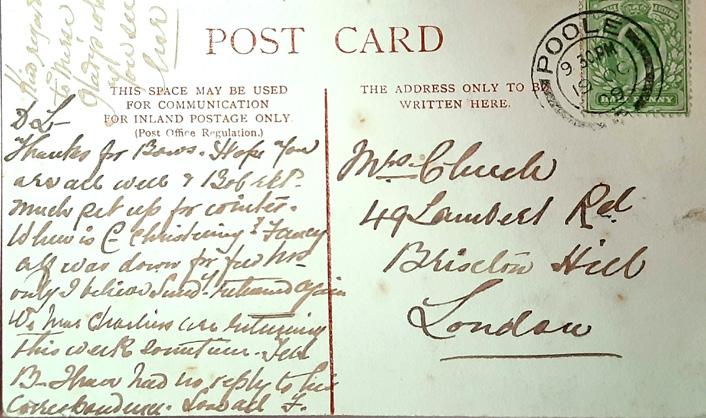 POST CARD
THIS SPACE MAY BE USED
FOR COMMUNICATION
FOR INLAND POSTAGE ONLY.
(Post Office Regulation.)
THE ADDRESS ONLY TO BE
WRITTEN HERE.
POOLE
9 30PM
HALFPENNY
D L
Thanks for Bows. Hope You
are all well & Bob &
much pet up for winter.
When is C Christening? Fancy
Alf was down for few hrs
only I believe Sund. returned again
We hear Charlies are returning
this week sometime. Tell
B I have had no reply to his
Correspondence. Love all F.
Kind regards
to
Gladys
you see
her
Mrs. Church
49 Lambert Rd
Brixton Hill
London